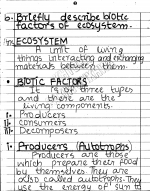 6. Briefly describe biotic
factors of ecosystem.
ECOSYSTEM
A unit of living
things interacting and exchanging
materials between them
• BIOTIC FACTORS
It is of three types
and these are the
living components.
i. Producers
ii. consumers
iii. Decomposers
i. Producers (Autotrophs)
Producers are those
which prepare their food
by themselves they are
also called autotrophs. They
use the energy of sun to